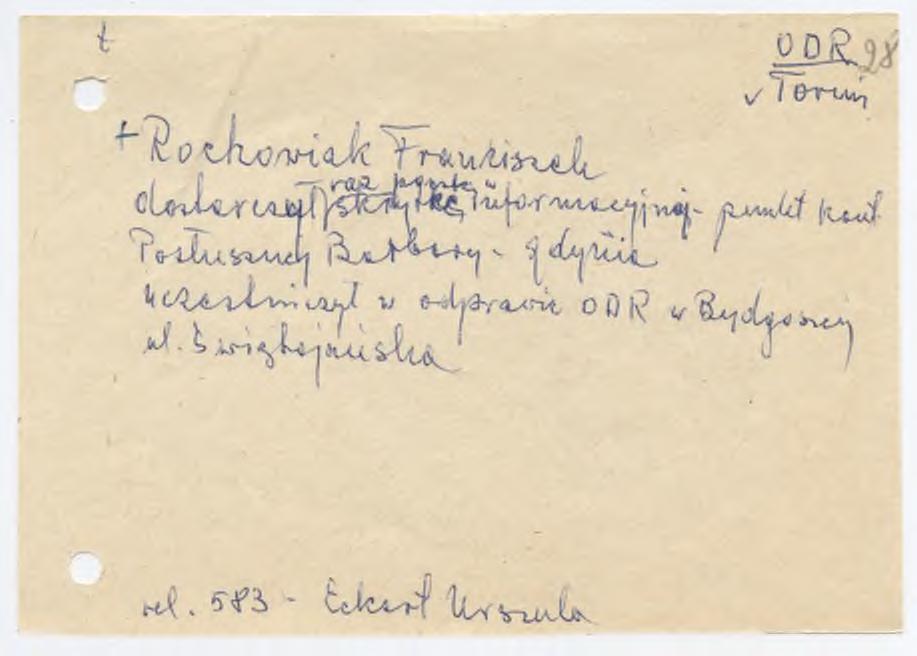 t
ODR 28
v Toruń
+ Rochowiak Franciszek
raz pocztę
dostarczył skrytkę informacyjną - punkt kont.
Posłusznej Barbary - Gdynia
uczestniczył w odprawie ODR w Bydgoszczy
ul. Świętojańska
rel. 583 - Eckert Urszula